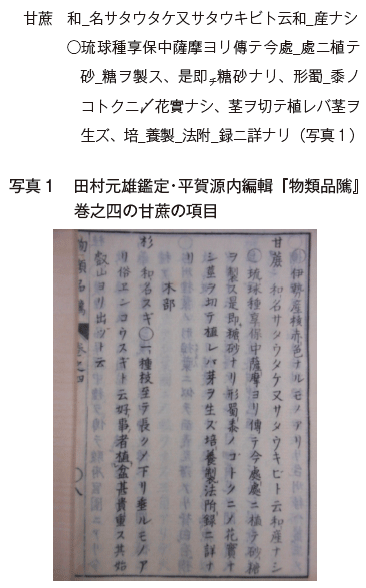 甘蔗　和_名サタウタケ又サタウキビト云和_産ナシ
〇琉球種享保中薩摩ヨリ傳テ今處_處ニ植テ
砂_糖ヲ製ス、是即チ糖砂ナリ、形蜀_黍ノ
コトクニ〆花實ナシ、茎ヲ切テ植レバ茎ヲ
生ズ、培_養製_法附_録ニ詳ナリ（写真１）
写真１　田村元雄鑑定・平賀源内編輯『物類品隲』
巻之四の甘蔗の項目
伊勢産檢赤色ナルモノアリ
甘蔗　和名サタウタケ又サタウキビト云和産ナシ
〇琉球種享保中薩摩ヨリ傳テ今處處ニ植テ砂糖
ヲ製ス是即糖砂ナリ形蜀黍ノコトクニ〆花實ナ
シ莖ヲ切テ植レバ芽ヲ生ズ培養製法附録ニ詳ナ
リ
木部
杉　和名スギ〇一種枝至テ長クノ下リ垂ルモノア
リ俗エンコウスギト云好事者植盆甚貴重ス其始
叡山ヨリ出ヅト云
物類品隲　巻之四　〇八